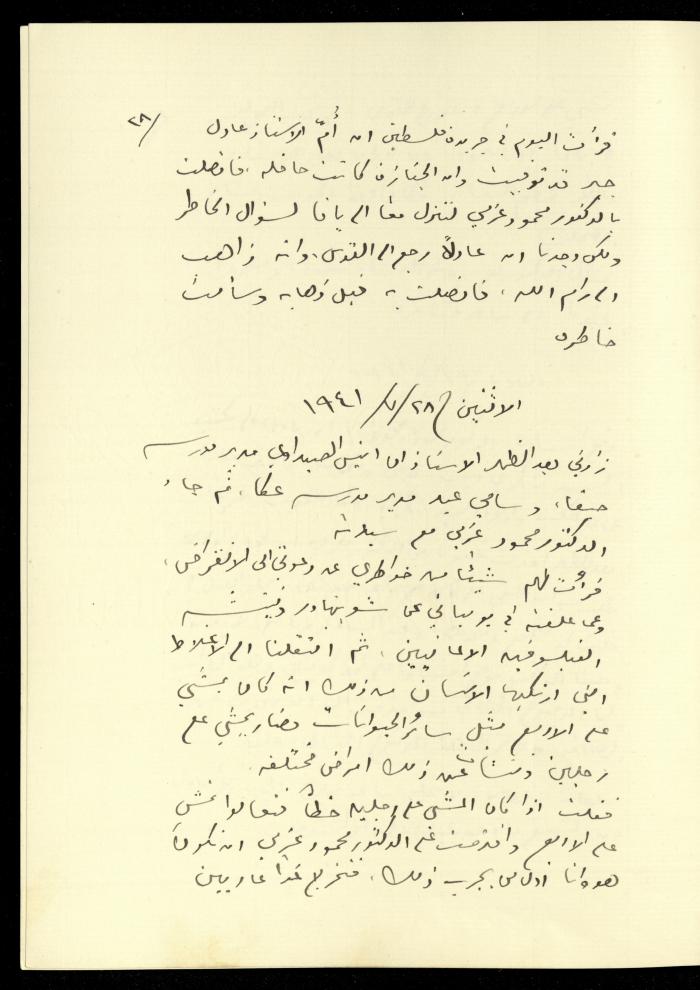 ٢٨/
قرأت اليوم في جريدة فلسطين ان أُمّ الاستاذ عادل
جبر قد توفيت وان الجنازة كانت حافلة ، فاتصلت
بالدكتور محمود عزمي لننزل معًا الى يافا لسؤال الخاطر
ولكن وجدنا ان عادلاً رجع الى القدس ، وانه ذاهب
الى رام الله ، فاتصلت به قبل ذهابه وسألت
خاطره
الاثنين ٢٨/ /١٩٤١
زارني بعد الظهر الاستاذان انيس الصيداوي مدير مدرسة
حيفا ، وسامي عيد مدير مدرسة عكا ، ثم جاء
الدكتور محمود عزمي مع سيدته
قرأت لهم شيئًا من خواطري عن دعوتي الى الانقراض ،
وعما علقته في يومياتي عن شوبنهاور ونيتشه
الفيلسوفين الالمانيين ، ثم انتقلنا الى الاغلاط
التي ارتكبها الانسان من ذلك انه كان يمشي
على الاربع مثل سائر الحيوانات فصار يمشي على
رجلين ونشأت عن ذلك امراض مختلفة
فقلت اذا كان المشي على رجلين خطأ فتعالوا نمش
على الاربع واقترحت على الدكتور محمود عزمي ان نكون
هو وانا اول من يجرب ذلك ، فنخرج غدًا عاريين